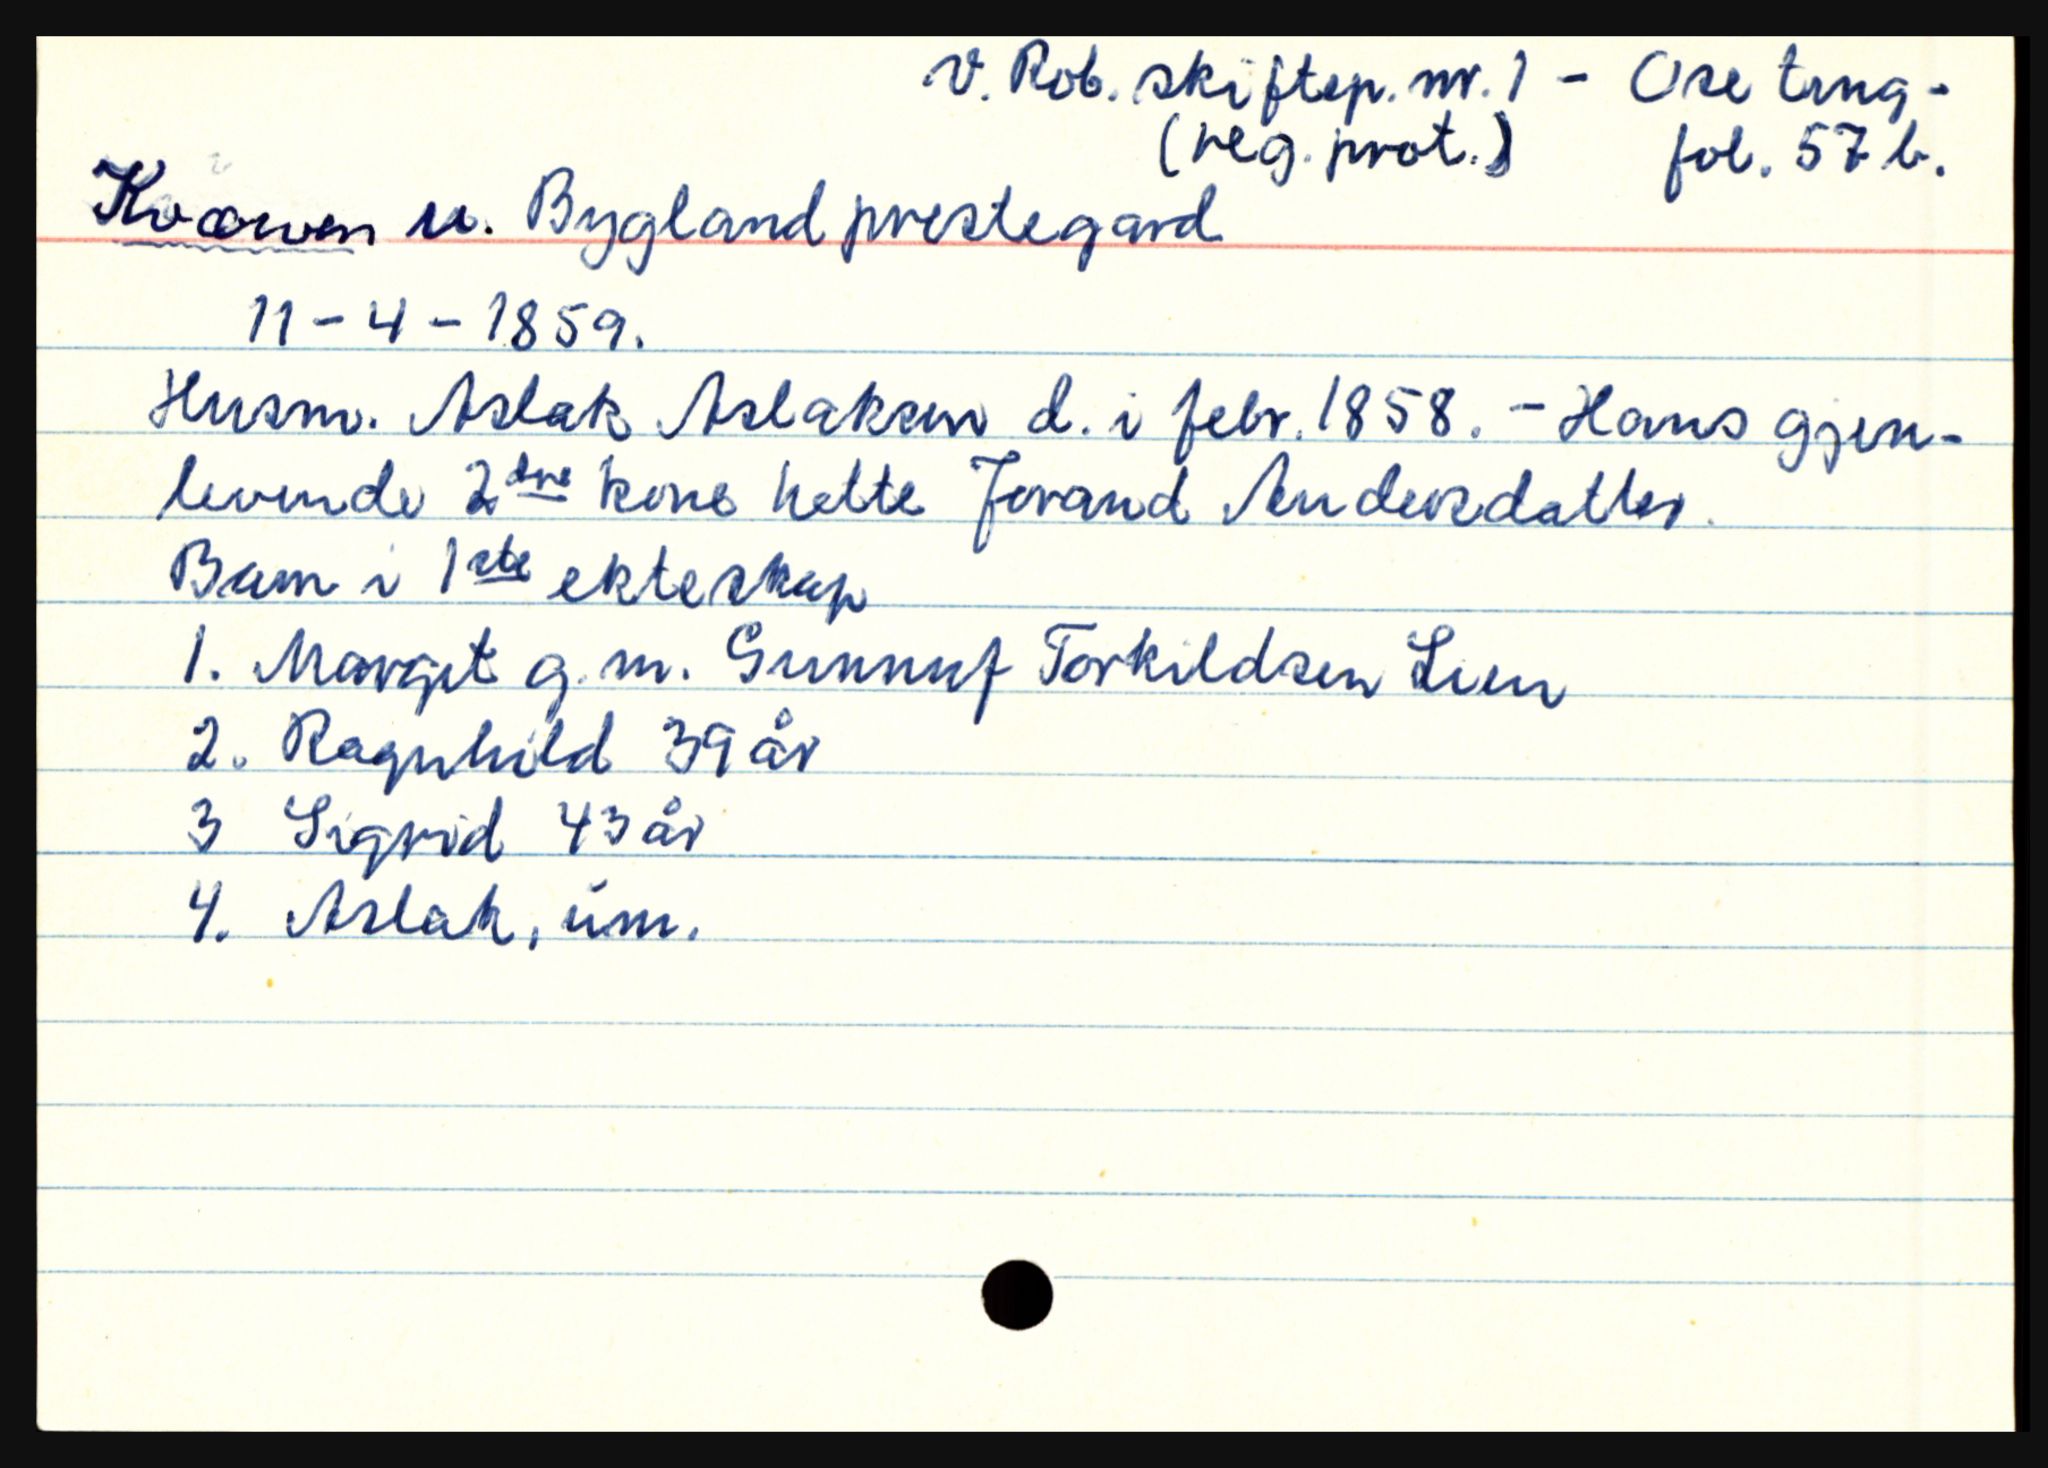 V. Rob. skiftep. nr. 1 - Ose ting-
(reg. prot.) fol. 57 b.
Kværven u. Bygland prestegard
11-4-1859.
Husm. Aslak Aslaksen d. i febr. 1858. - Hans gjen-
levende 2dre kone hette Jorand Andersdatter.
Barn i 1ste ekteskap
1. Margit g. m. Gunnuf Torkildsen Lien
2. Ragnhild 39 år
3 Sigrid 43 år
4. Aslak, um.